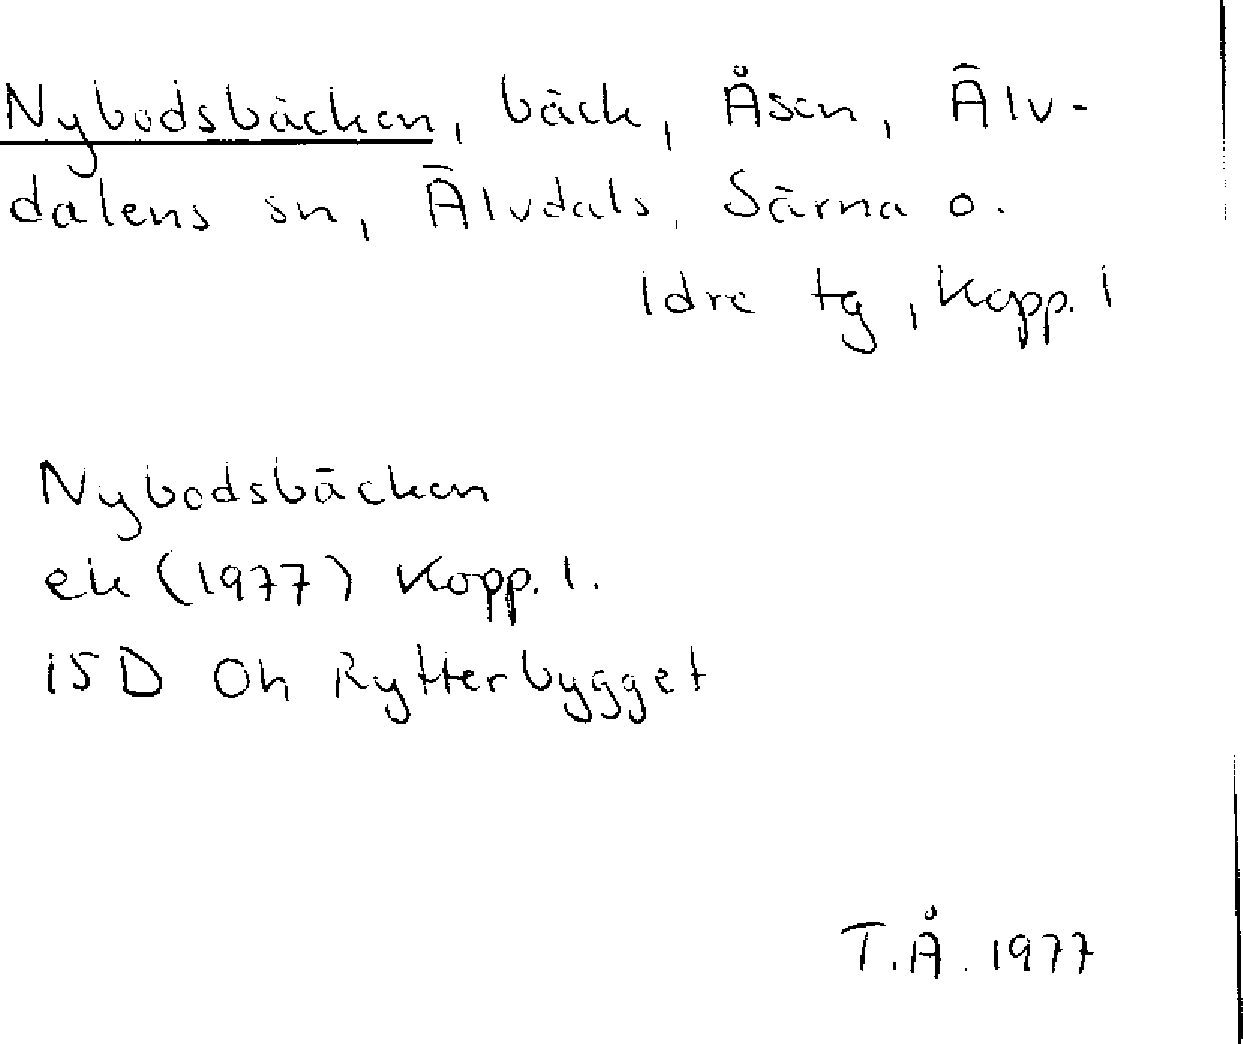 Nybodsbäcken, bäck, Åsen, Älv-
dalens sn, Älvdals, Särna o.
Idre tg, Kopp. l
Nybodsbäcken
ek (1977) Kopp. l.
15D 0h Rytterbygget
T.Å. 1977